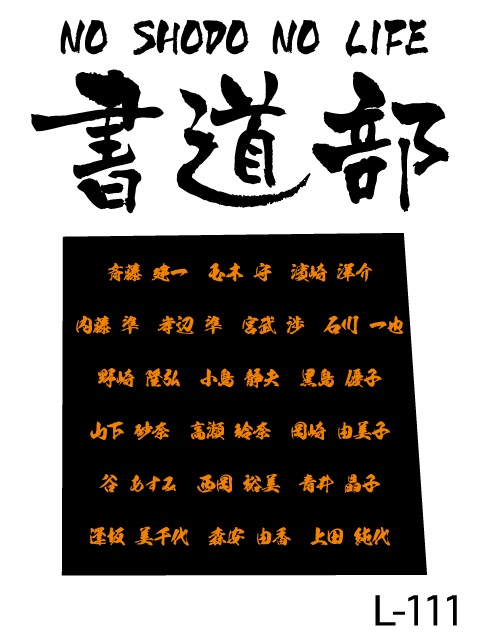 NO SHODO NO LIFE
書道部
斉藤 建一 玉木 守 濱崎 洋介
内藤 準 渡辺 準 宮武 渉 石川 一也
野崎 隆弘 小島 静夫 黒島 優子
山下 砂奈 高瀬 玲奈 岡崎 由美子
谷 あすみ 西岡 裕美 青井 晶子
逢坂 美千代 森安 由香 上田 純代
L-111